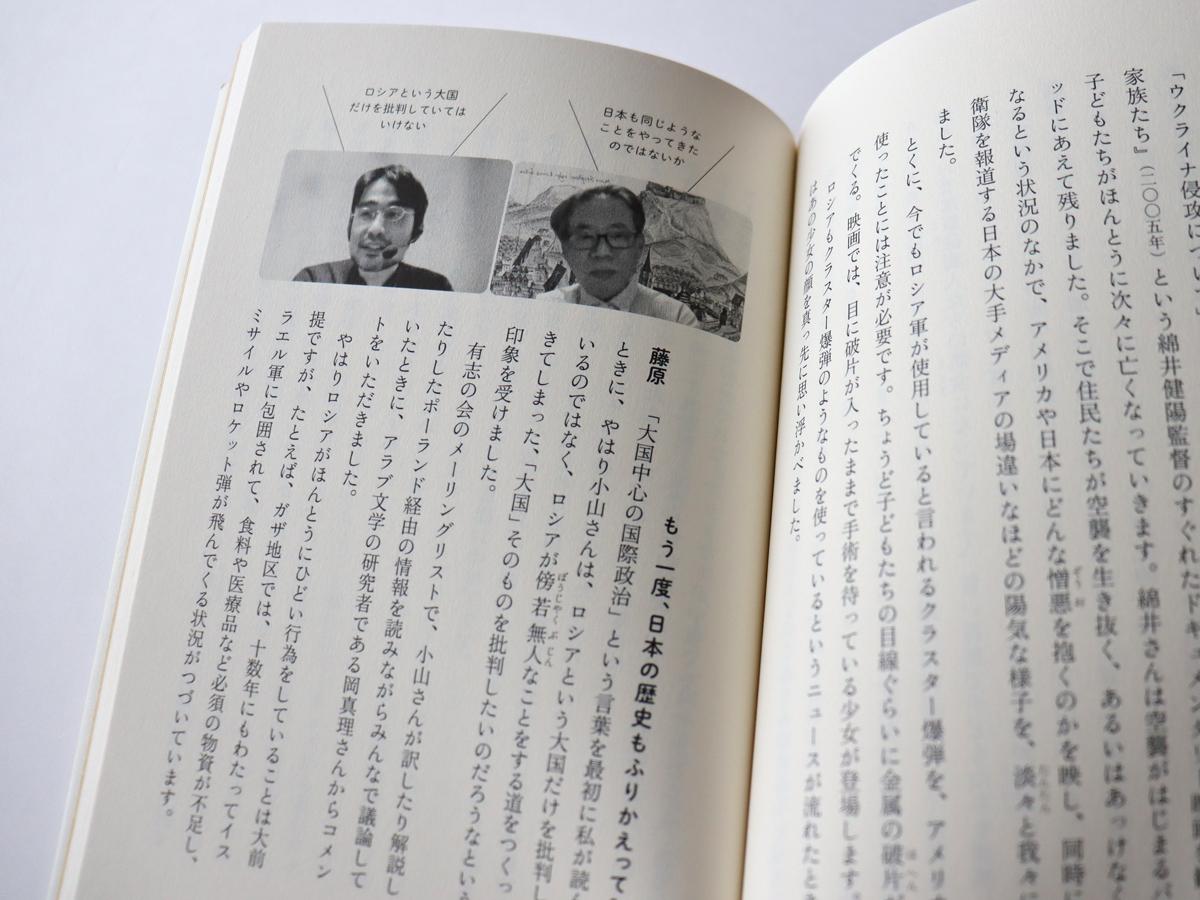 「ウクライナ侵攻につい
家族たち』(二〇〇五年)という綿井健陽監督のすぐれたドキュメン
子どもたちがほんとうに次々に亡くなっていきます。綿井さんは空襲がはじまるバ
ッドにあえて残りました。そこで住民たちが空襲を生き抜く、あるいはあっけなく
なるという状況のなかで、アメリカや日本にどんな憎悪を抱くのかを映し、同時に
衛隊を報道する日本の大手メディアの場違いなほどの陽気な様子を、淡々と我々に
ました。
とくに、今でもロシア軍が使用していると言われるクラスター爆弾を、アメリカ
使ったことには注意が必要です。ちょうど子どもたちの目線ぐらいに金属の破片が
でくる。映画では、目に破片が入ったままで手術を待っている少女が登場します。
ロシアもクラスター爆弾のようなものを使っているというニュースが流れたとき
はあの少女の顔を真っ先に思い浮かべました。
日本も同じような
ことをやってきた
のではないか
ロシアという大国
だけを批判していては
いけない
もう一度、日本の歴史もふりかえって
藤原 「大国中心の国際政治」という言葉を最初に私が読ん
ときに、やはり小山さんは、ロシアという大国だけを批判し
いるのではなく、ロシアが傍若無人なことをする道をつくっ
きてしまった、「大国」そのものを批判したいのだろうなという
印象を受けました。
有志の会のメーリングリストで、小山さんが訳したり解説し
たりしたポーランド経由の情報を読みながらみんなで議論して
いたときに、アラブ文学の研究者である岡真理さんからコメン
トをいただきました。
やはりロシアがほんとうにひどい行為をしていることは大前
提ですが、たとえば、ガザ地区では、十数年にもわたってイス
ラエル軍に包囲されて、食料や医療品など必須の物資が不足し、
ミサイルやロケット弾が飛んでくる状況がつづいています。